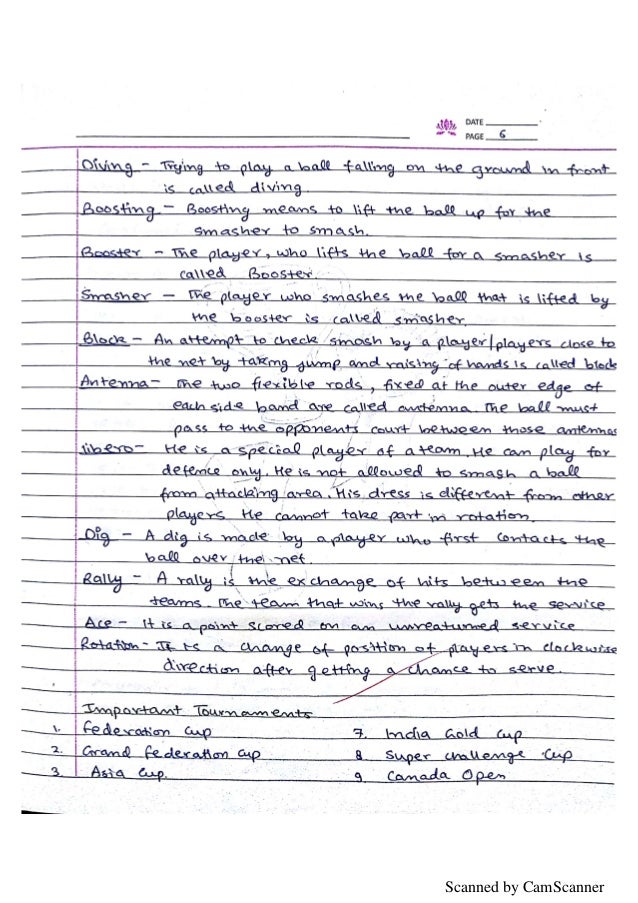 DATE
PAGE 6
Diving - Trying to play a ball falling on the ground in front
is called diving.
Boosting - Boosting means to lift the ball up for the
smasher to smash.
Booster - The player, who lifts the ball for a smasher is
called Booster.
Smasher - The player who smashes the ball that is lifted by
the booster is called smasher.
Block - An attempt to check smash by a player/players close to
the net by taking jump and raising of hands is called block
Antenna - The two flexible rods, fixed at the outer edge of
each side band are called antenna. The ball must
pass to the opponents court between those antennas
libero - He is a special player of a team. He can play for
defence only. He is not allowed to smash a ball
from attacking area. His dress is different from other
players. He cannot take part in rotation.
Dig - A dig is made by a player who first contacts the
ball over the net.
Rally - A rally is the exchange of hits between the
teams. The team that wins the rally gets the service
Ace - It is a point scored on an unreturned service
Rotation - It is a change of position of players in clockwise
direction after getting a chance to serve.
Important Tournaments
1. Federation Cup
7. India Gold Cup
2. Grand Federation Cup
8. Super challenge Cup
3. Asia Cup
9. Canada Open
Scanned by CamScanner